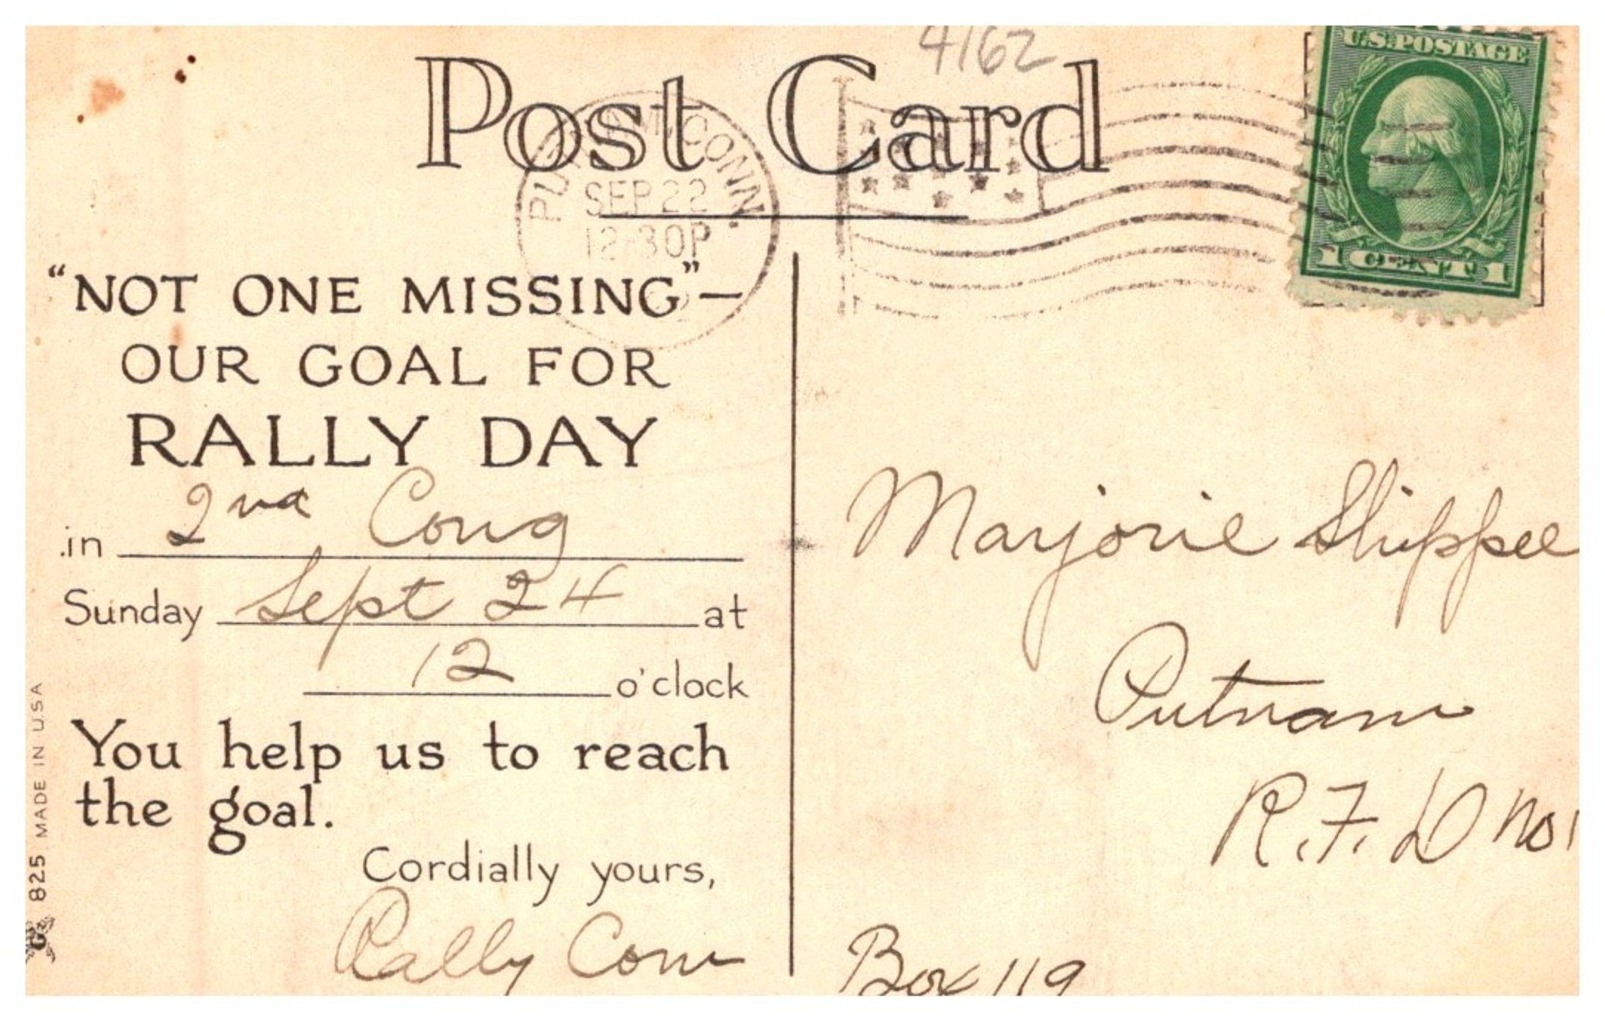 4162
Post Card
U.S. POSTAGE
1 CENT 1
PUTNAM, CONN.
SEP 22
12-30P
"NOT ONE MISSING"—
OUR GOAL FOR
RALLY DAY
in 2nd Cong
Sunday Sept 24 at
12 o'clock
You help us to reach
the goal.
Cordially yours,
Rally Com
Marjorie Shippee
Putnam
R.F.D No 1
Box 119
825 MADE IN USA
G